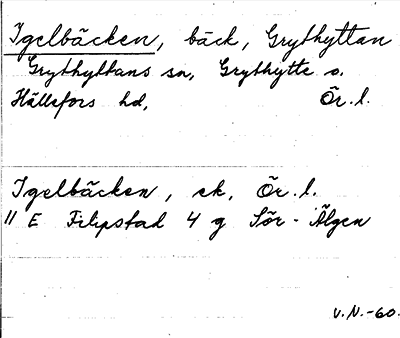 Igelbäcken, bäck, Grythyttan
Grythyttans sn, Grythytte o.
Hällefors hd, Ör. l.
Igelbäcken, ek, Ör. l.
11 E Filipstad 4 g Sör-Älgen
V.N.-60.